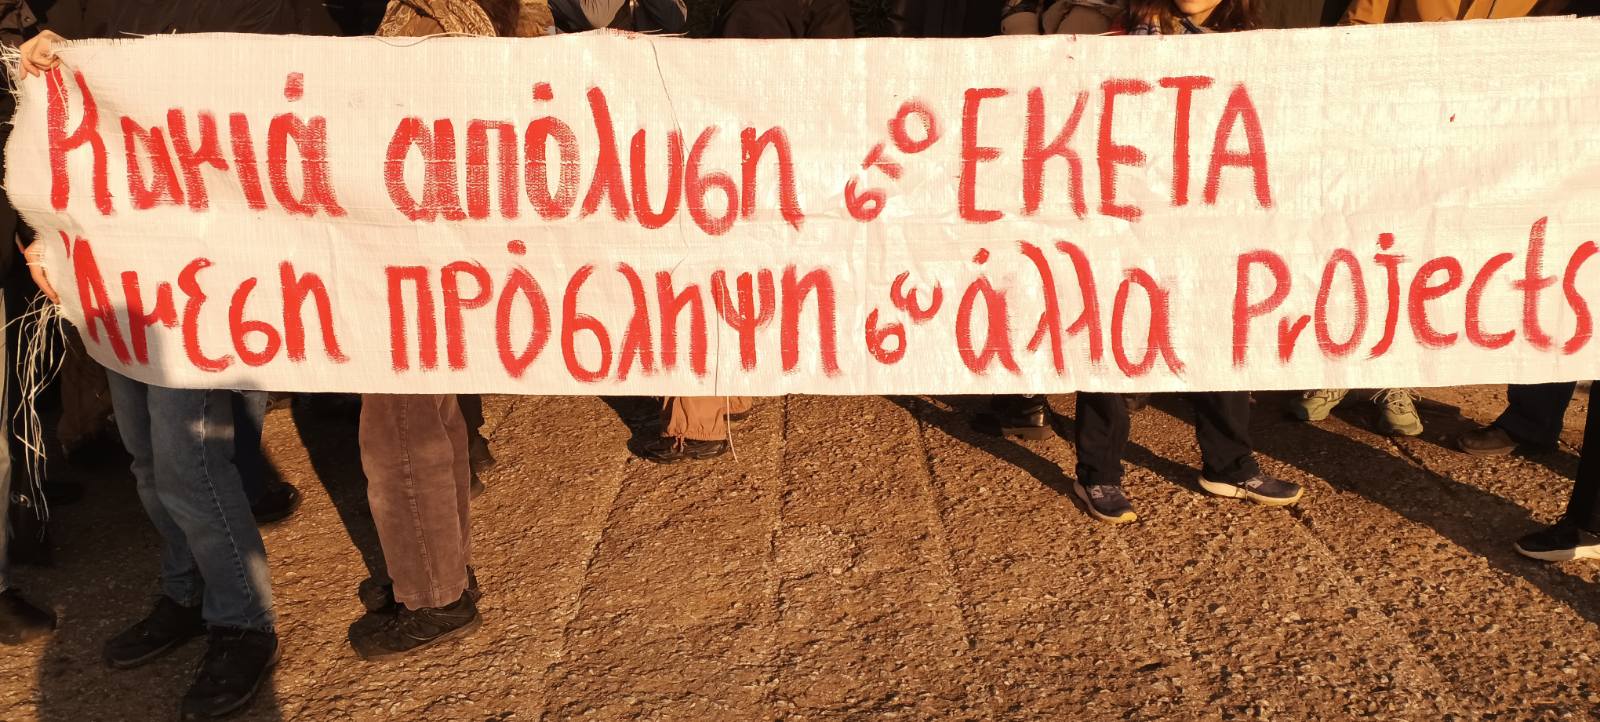 Καμιά απόλυση στο ΕΚΕΤΑ
Άμεση πρόσληψη σε άλλα Projects